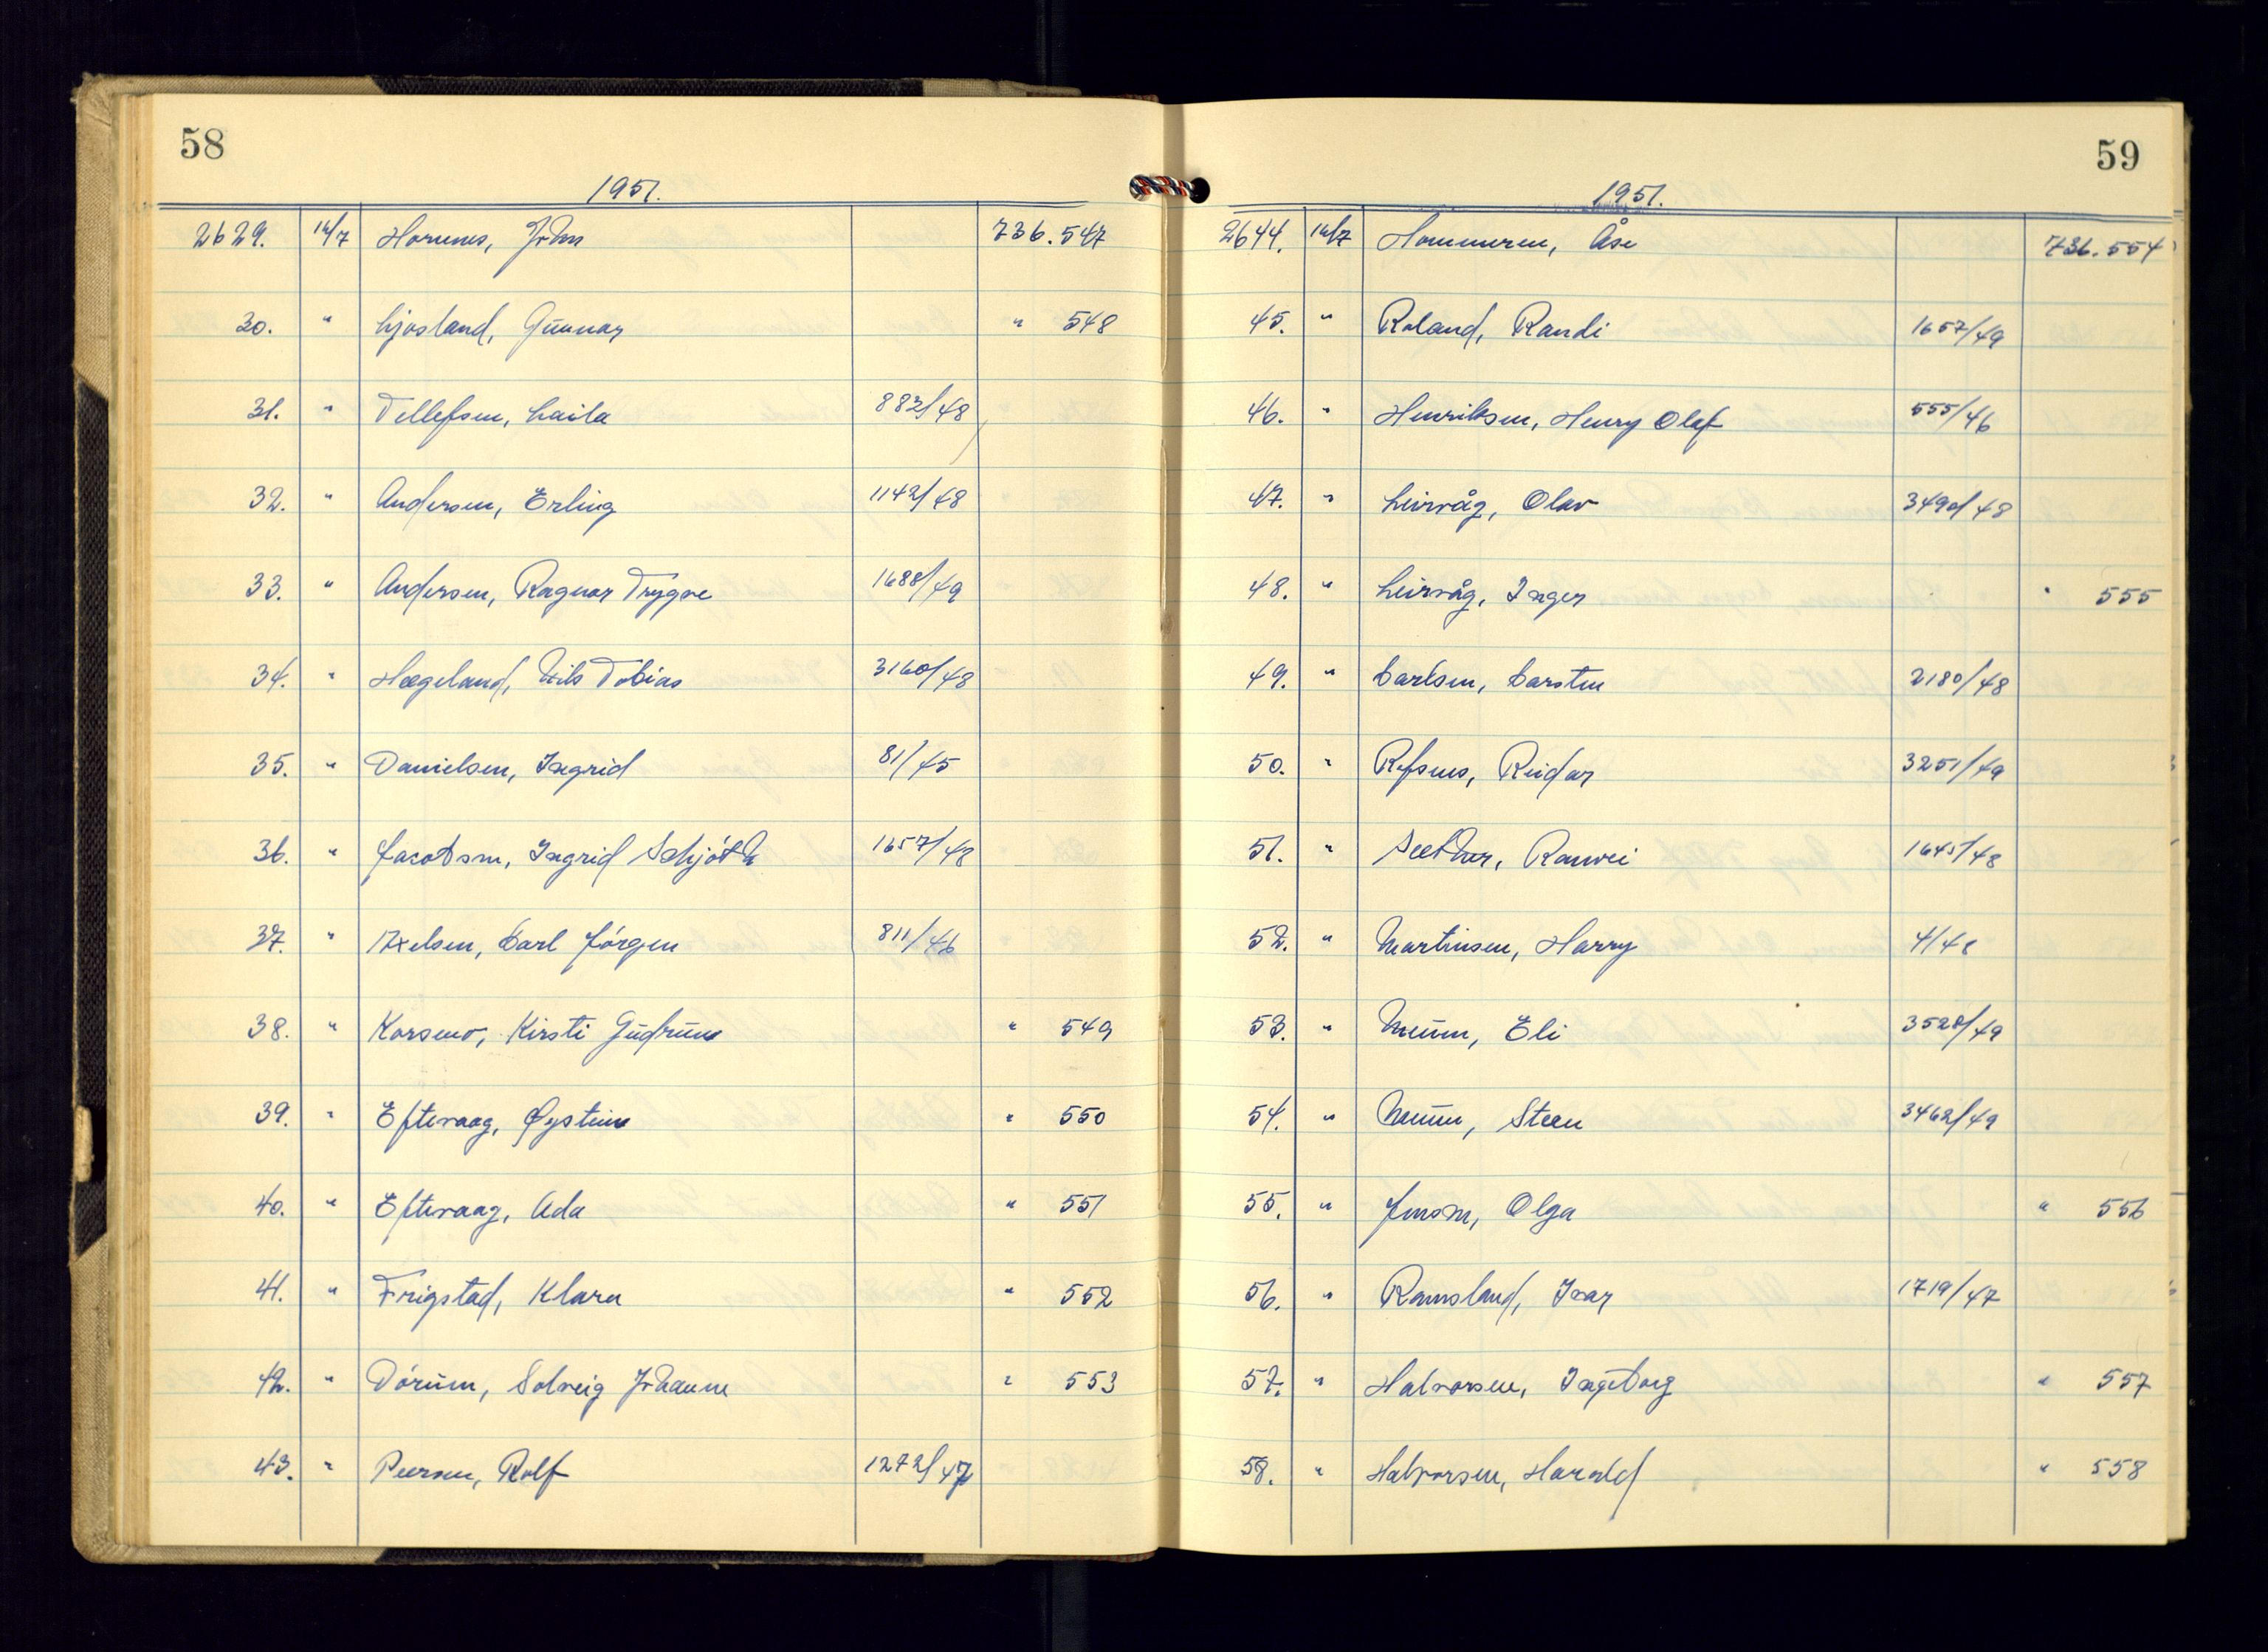 58
1951.
2629. 14/7 Hornnes, John 736.547
30. " Ljosland, Gunnar " 548
31. " Tellefsen, Laila 882/48
32. " Andersen, Erling 1142/48
33. " Andersen, Ragnar Trygve 1688/49
34. " Hægeland, Nils Tobias 3160/48
35. " Danielsen, Ingrid 81/45
36. " Jacobsen, Ingrid Schjóth 1657/48
37. " Axelsen, Carl Jórgen 811/46
38. " Korsmo, Kirsti Gudrun " 549
39. " Eftevaag, Øystein " 550
40. " Eftevaag, Ada " 551
41. " Frigstad, Klara " 552
42. " Dórum, Solveig Johanne " 553
43. " Peersen, Rolf 1272/47
59
1951.
2644. 14/7 Hommeren, Åse 736.554
45. " Roland, Randi 1657/49
46. " Henriksen, Henry Olaf 555/46
47. " Leirvåg, Olav 3490/48
48. " Leirvåg, Inger " 555
49. " Carlsen, Carsten 2180/48
50. " Refsnes, Reidar 3251/49
51. " Ranvei 1645/48
52. " Martinsen, Harry 4/48
53. " Mæum, Eli 3528/49
54. " Steen 3462/49
55. " Jensen, Olga " 556
56. " Ramsland, Ivar 1719/47
57. " Halvorsen, Ingeborg " 557
58. " Halvorsen, Harald " 558